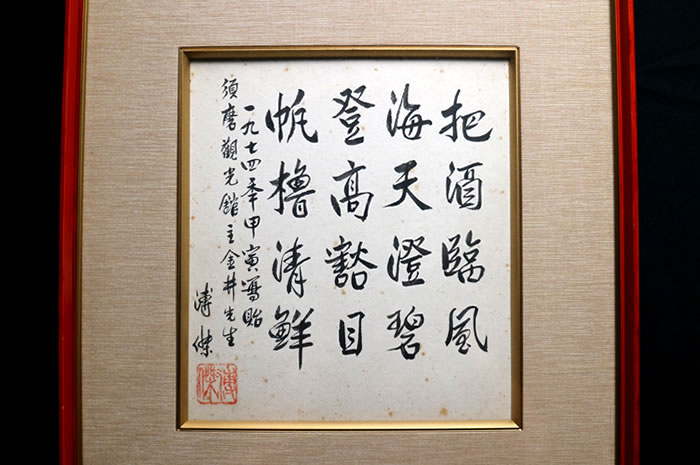 把酒臨風
海天澄碧
登高豁目
帆櫓清鮮
一九七四年甲寅寫貽
須磨觀光館主金井先生
溥傑
溥傑